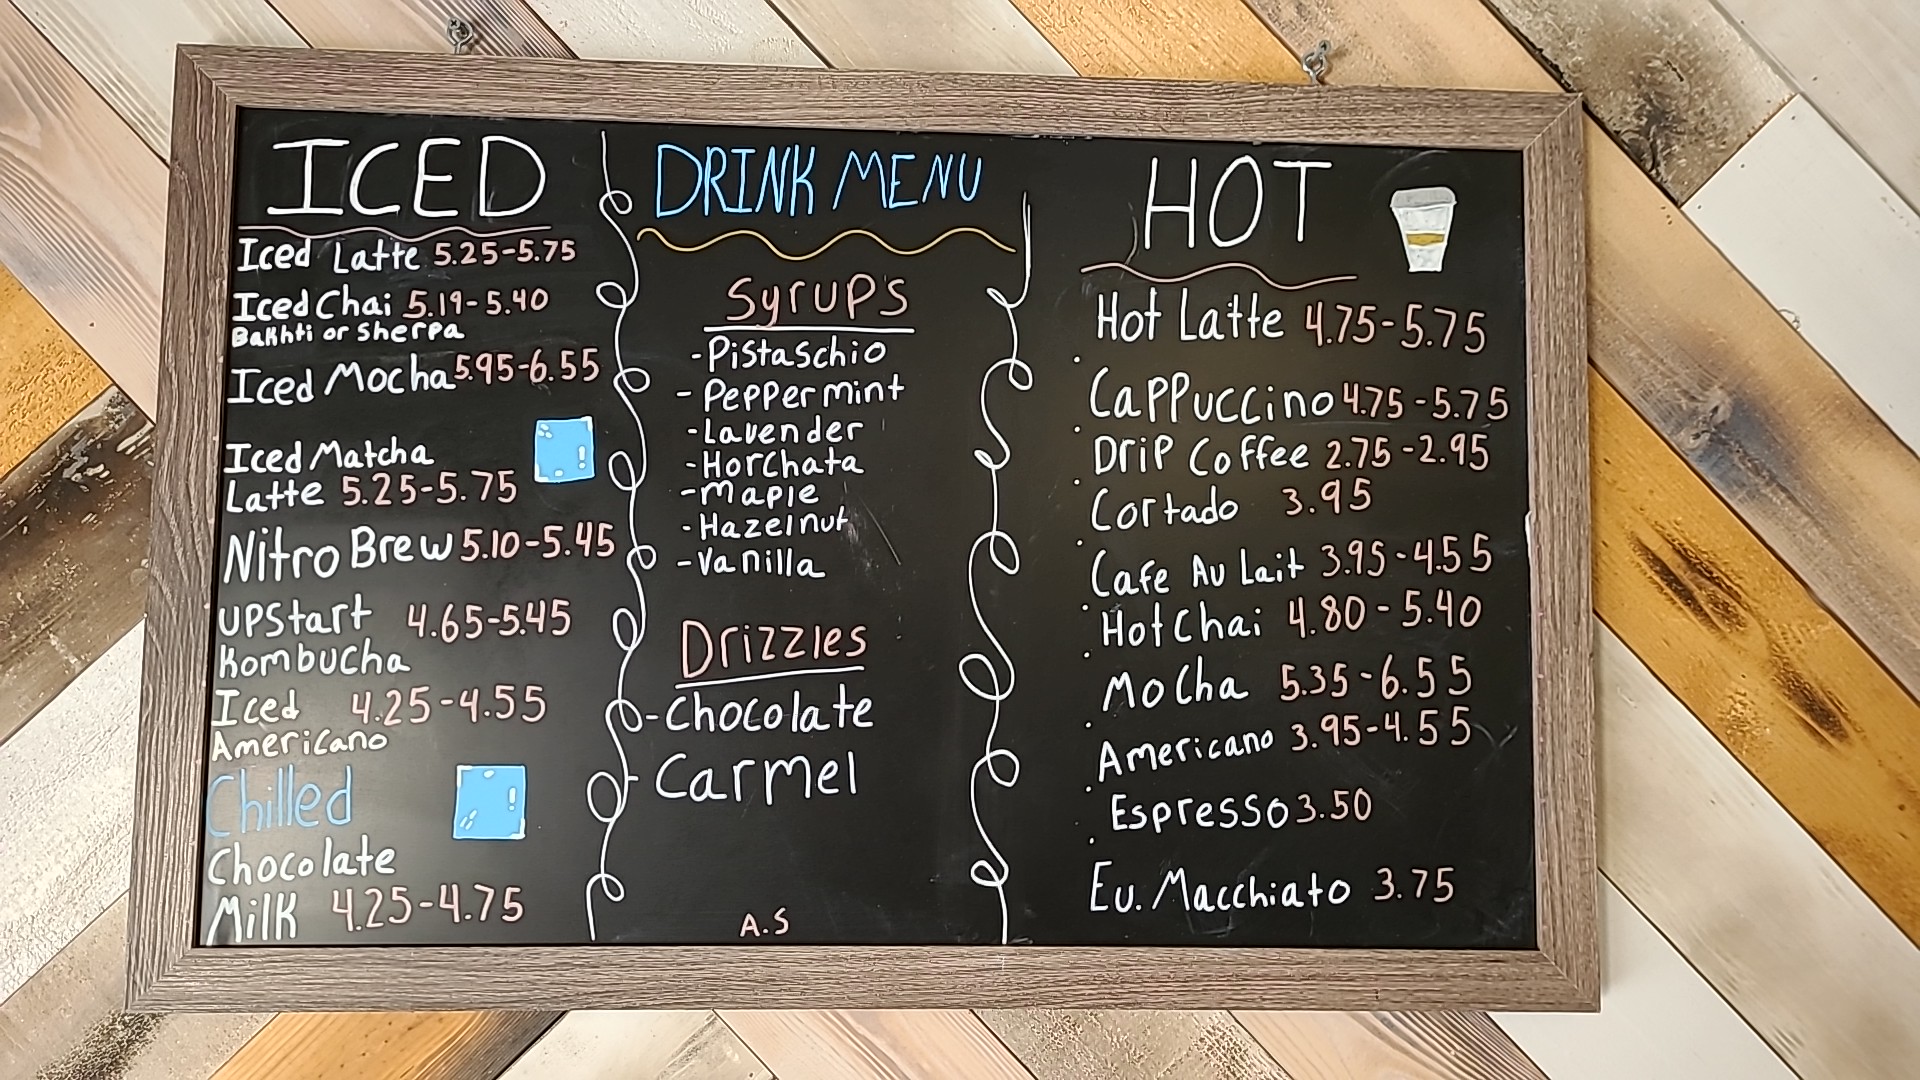 ICED
Iced Latte 5.25-5.75
Iced Chai 5.19-5.40
Bakhti or Sherpa
Iced Mocha 5.95-6.55
Iced Matcha
Latte 5.25-5.75
Nitro Brew 5.10-5.45
UPStart 4.65-5.45
Kombucha
Iced 4.25-4.55
Americano
Chilled
Chocolate
Milk 4.25-4.75
DRINK MENU
Syrup's
-Pistaschio
-Peppermint
-Lavender
-Horchata
-Maple
-Hazelnut
-Vanilla
Drizzles
-Chocolate
- Carmel
A.S
HOT
Hot Latte 4.75-5.75
Cappuccino 4.75-5.75
Drip Coffee 2.75-2.95
Cortado 3.95
Cafe Au Lait 3.95-4.55
Hot Chai 4.80-5.40
Mocha 5.35-6.55
Americano 3.95-4.55
Espresso 3.50
Eu. Macchiato 3.75